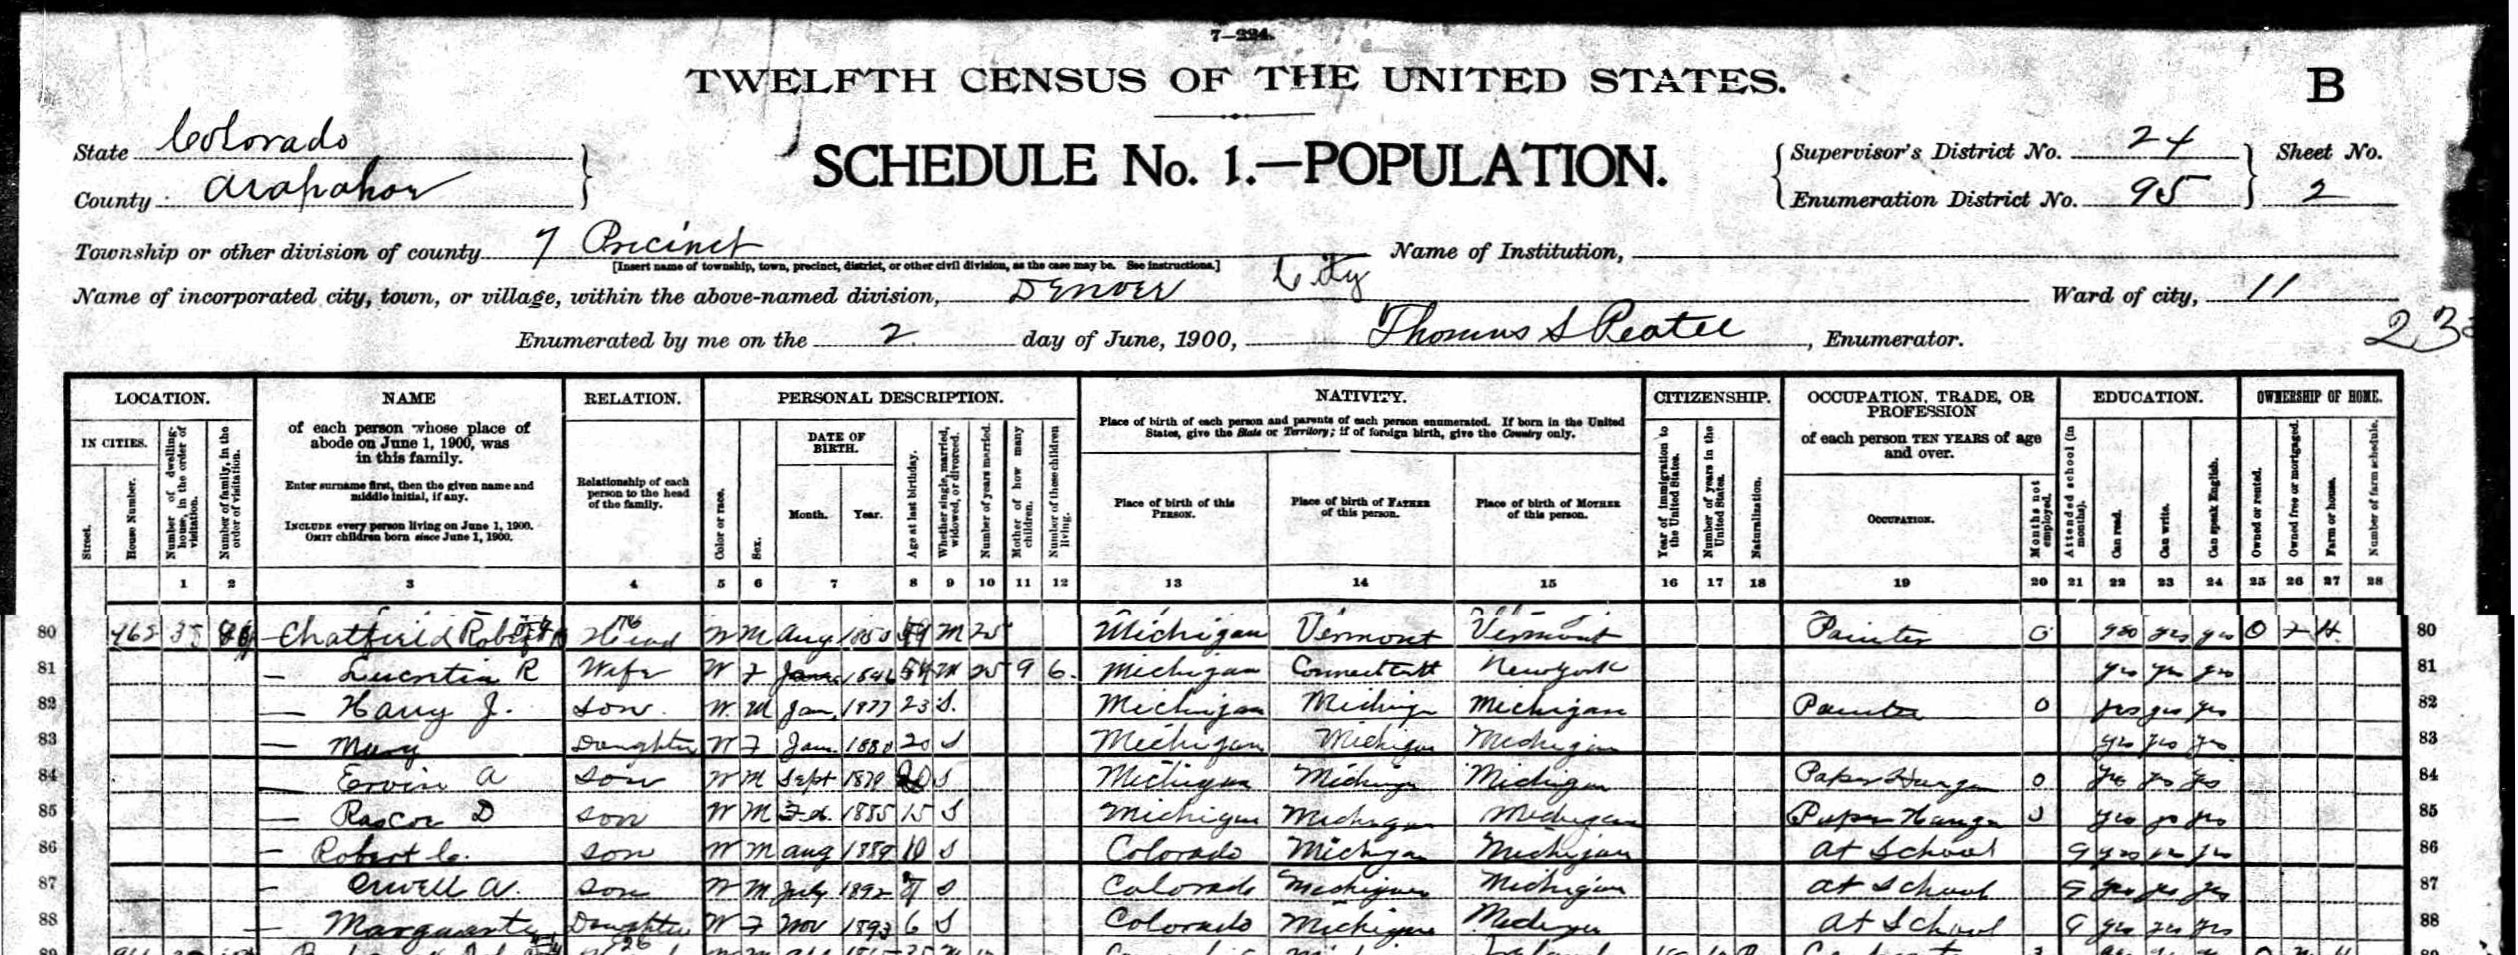 7—224.
TWELFTH CENSUS OF THE UNITED STATES.
B
State Colorado
County Arapahoe
SCHEDULE No. 1.—POPULATION.
Supervisor's District No. 24
Enumeration District No. 95
Sheet No.
2
Township or other division of county 7 Precinct
[Insert name of township, town, precinct, district, or other civil division, as the case may be. See instructions.]
Name of Institution,
Name of incorporated city, town, or village, within the above-named division, Denver City
Ward of city, 11
Enumerated by me on the 2 day of June, 1900, Thomas S , Enumerator.
23
LOCATION.
IN CITIES.
Street.
House Number.
Number of dwelling-house, in the order of visitation.
Number of family, in the order of visitation.
NAME
of each person whose place of abode on June 1, 1900, was in this family.
Enter surname first, then the given name and middle initial, if any.
INCLUDE every person living on June 1, 1900.
OMIT children born since June 1, 1900.
RELATION.
Relationship of each person to the head of the family.
PERSONAL DESCRIPTION.
Color or race.
Sex.
DATE OF BIRTH.
Month.
Year.
Age at last birthday.
Whether single, married, widowed, or divorced.
Number of years married.
Mother of how many children.
Number of these children living.
NATIVITY.
Place of birth of each person and parents of each person enumerated. If born in the United States, give the State or Territory; if of foreign birth, give the Country only.
Place of birth of this PERSON.
Place of birth of FATHER of this person.
Place of birth of MOTHER of this person.
CITIZENSHIP.
Year of immigration to the United States.
Number of years in the United States.
Naturalization.
OCCUPATION, TRADE, OR PROFESSION
of each person TEN YEARS of age and over.
OCCUPATION.
Months not employed.
EDUCATION.
Attended school (in months).
Can read.
Can write.
Can speak English.
OWNERSHIP OF HOME.
Owned or rented.
Owned free or mortgaged.
Farm or house.
Number of farm schedule.
1 2 3 4 5 6 7 8 9 10 11 12 13 14 15 16 17 18 19 20 21 22 23 24 25 26 27 28
80 35 Chatfield Robert Head W M Aug M 25 Michigan Vermont Vermont Painter 0 yes yes yes O F H 80
81 — Lucretia R Wife W F 1846 54 M 25 9 6 Michigan Connecticutt New York yes yes yes 81
82 — Harry J. Son W. M Jan. 1877 23 S. Michigan Michign Michigan Painter 0 yes yes yes 82
83 — Mary Daughter W F Jan. 1880 20 S Michigan Michigan Michigan yes yes yes 83
84 — Ervin A Son W M Sept 1879 20 S Michigan Michigan Michigan Paper Hanger 0 yes yes yes 84
85 — Roscoe D Son W M 1885 15 S Michigan Michigan Michigan Paper Hanger yes yes yes 85
86 — Robert C. Son W M Aug 1889 10 S Colorado Michigan Michigan At School 9 yes yes yes 86
87 — Orwell A. Son W M July 1892 S Colorado Michigan Michigan at School 9 yes yes yes 87
88 — Daughter W F Nov 1893 6 S Colorado Michigan Michigan At School 9 yes yes yes 88
89 89